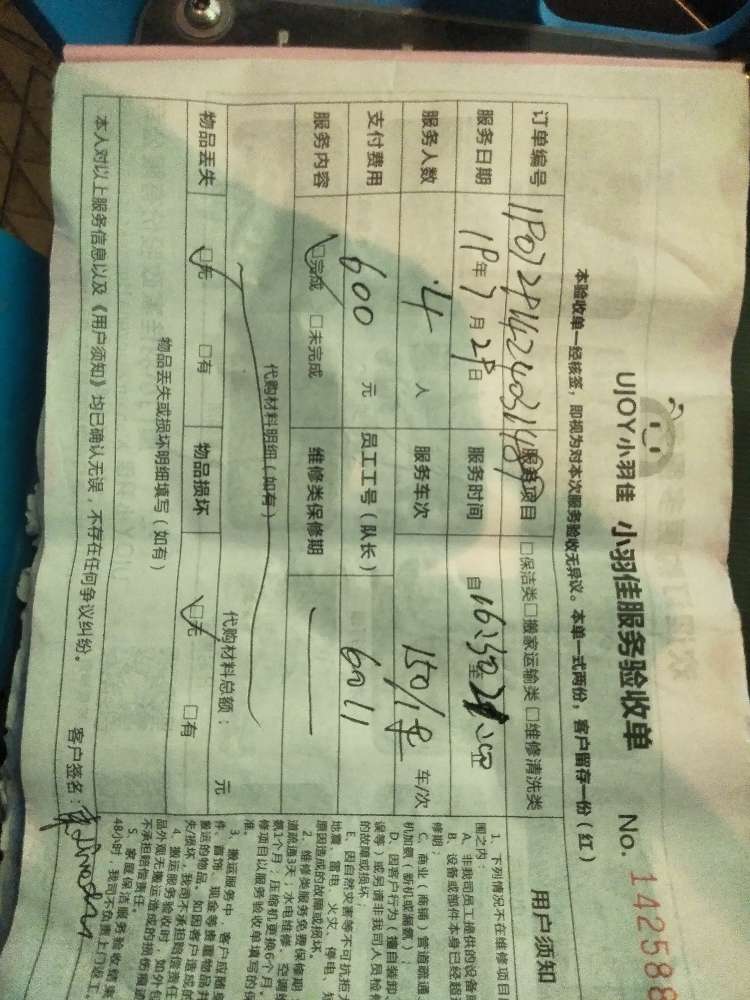 UJOY小羽佳 小羽佳服务验收单 No. 142588
本验收单一经核签，即视为对本次服务验收无异议。本单一式两份，客户留存一份（红）
订单编号 服务项目 □保洁类□搬家运输类□维修清洗类
服务日期 19年7月29日 服务时间 自16:30至
服务人数 4人 服务车次 150/1车 车/次
支付费用 600元 员工工号（队长） 6011
服务内容 □完成 □未完成 维修类保修期
代购材料明细（如有） 代购材料总额： 元
物品丢失 □无 □有 物品损坏 □无 □有
物品丢失或损坏明细填写（如有）
本人对以上服务信息以及《用户须知》均已确认无误，不存在任何争议纠纷。 客户签名：
用户须知
1、下列情况不在维修项目
围之内：
A、非我司员工提供的设备
B、设备或部件本身已经超
修期；
C、商业（商铺）管道疏通、
机加氨（新机或漏氨）
D、因客户行为（擅自装卸、
误等）或另请非我司人员检修
的故障或损坏；
E、因自然灾害等不可抗拒
地震、雷电、火灾、停电、
原因造成的故障或损坏。
2、维修类服务免费保修期
道疏通3天；水电维修、空调
氨1个月；压缩机更换6个月。
修项目以服务验收单填写的保
准。
3、搬运服务中，客户应随身
件、首饰、现金等贵重物品并
搬运的物品。如因客户造成的
失/损坏，我司不承担赔偿责任
4、搬运服务验收时，如外包
品外观无搬运造成的损伤痕迹
不承担赔偿责任。
5、家庭保洁服务验收结束
48小时，我司不负责上门返工。